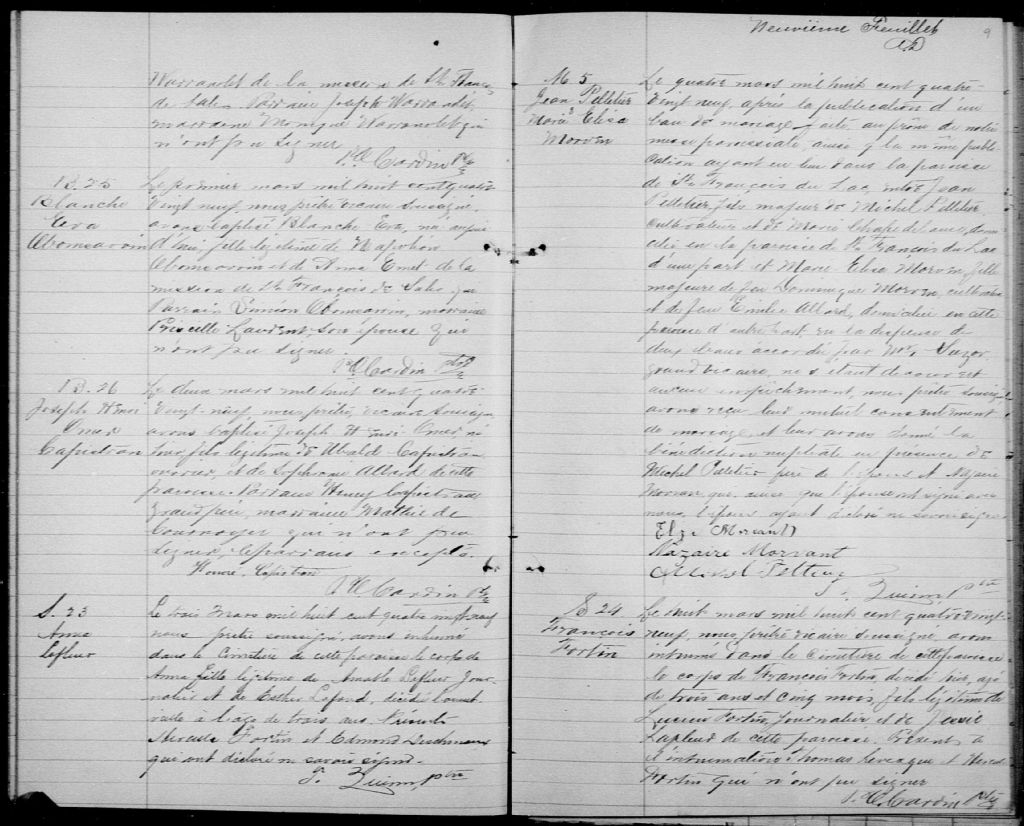 de la mission de St. François
de Sales Parrain Joseph
marraine Monique qui
n'ont pu signer
Cardin Ptre
B. 25
Blanche
Eva
Obomsawin
Le premier mars mil huit cent quatre
vingt neuf, nous prêtre vicaire soussigné,
avons baptisé Blanche Eva, née
d'hui, fille légitime de Napoléon
Obomsawin et de Anna Emet de la
mission de St. François de Sales
Parrain Siméon Obomsawin, marraine
Priscille Laurent son épouse qui
n'ont pu signer
Cardin Ptre
B. 26
Joseph Henri
Omer
Capistran
Le deux mars mil huit cent quatre
vingt-neuf, nous prêtre, vicaire soussigné
avons baptisé Joseph Henri Omer, né
hier, fils légitime de Ubald Capistran
ouvrier, et de Sophronie Allard de cette
paroisse. Parrain Henry Capistran
grand père, marraine Mathie de
Cournoyer qui n'ont pu
signer, le parrain excepté.
Honoré Capistran
Cardin Ptre
S. 23
Anna
Lefleur
Le trois Mars mil huit cent quatre vingt neuf
nous prêtre soussigné, avons inhumé
dans le cimetière de cette paroisse le corps de
Anna fille légitime de Amable Lefleur Jour-
nalier et de Esther Lafond, décédé
à l'age de trois ans Présents
Hercule Fortin et Edmond
que ont déclaré ne savoir signer.
Quinn, ptre
Neuvième Feuillet
9
M. 5
Jean Pelletier
&
Marie Elisa
Morvan
Le quatre mars mil huit cent quatre-
vingt neuf, après la publication d'un
ban de mariage faite au prône de notre
messe paroissiale, aussi q la même publi-
cation ayant eu lieu dans la paroisse
de St François du Lac, entre Jean
Pelletier, fils majeur de Michel Pelletier,
cultivateur et de Marie Chapdelaine, domi-
cilié en la paroisse de St François du Lac
d'une part et Marie Elisa Morvan fille
majeure de feu Dominique Morvan, cultivateur
et de feue Emilie Allard, domiciliée en cette
paroisse d'autre part, vu la dispense de
deux bans accordée par Mr. Suzor,
grand vicaire, ne s'étant découvert
aucun empêchement, nous prêtre soussigné
avons reçu leur mutuel consentement
de mariage et leur avons donné la
bénédiction nuptiale en présence de
Michel Pelletier père de l'époux et Nazaire
Morvan qui ainsi que l'épouse ont signé avec
nous, l'époux ayant déclaré ne savoir signer.
Morvant
Nazaire Morvant
Quinn ptre
S 24
François
Fortin
Le huit mars mil huit cent quatre vingt-
neuf, nous, prêtre vicaire soussigné, avons
inhumé dans le cimetière de cette paroisse
le corps de François Fortin, décédé hier, agé
de trois ans et cinq mois, fils légitime de
Lucien Fortin, Journalier et de
de cette paroisse. Présents à
l'inhumation Thomas Levesque et Hercule
Fortin qui n'ont pu signer
Cardin Ptre